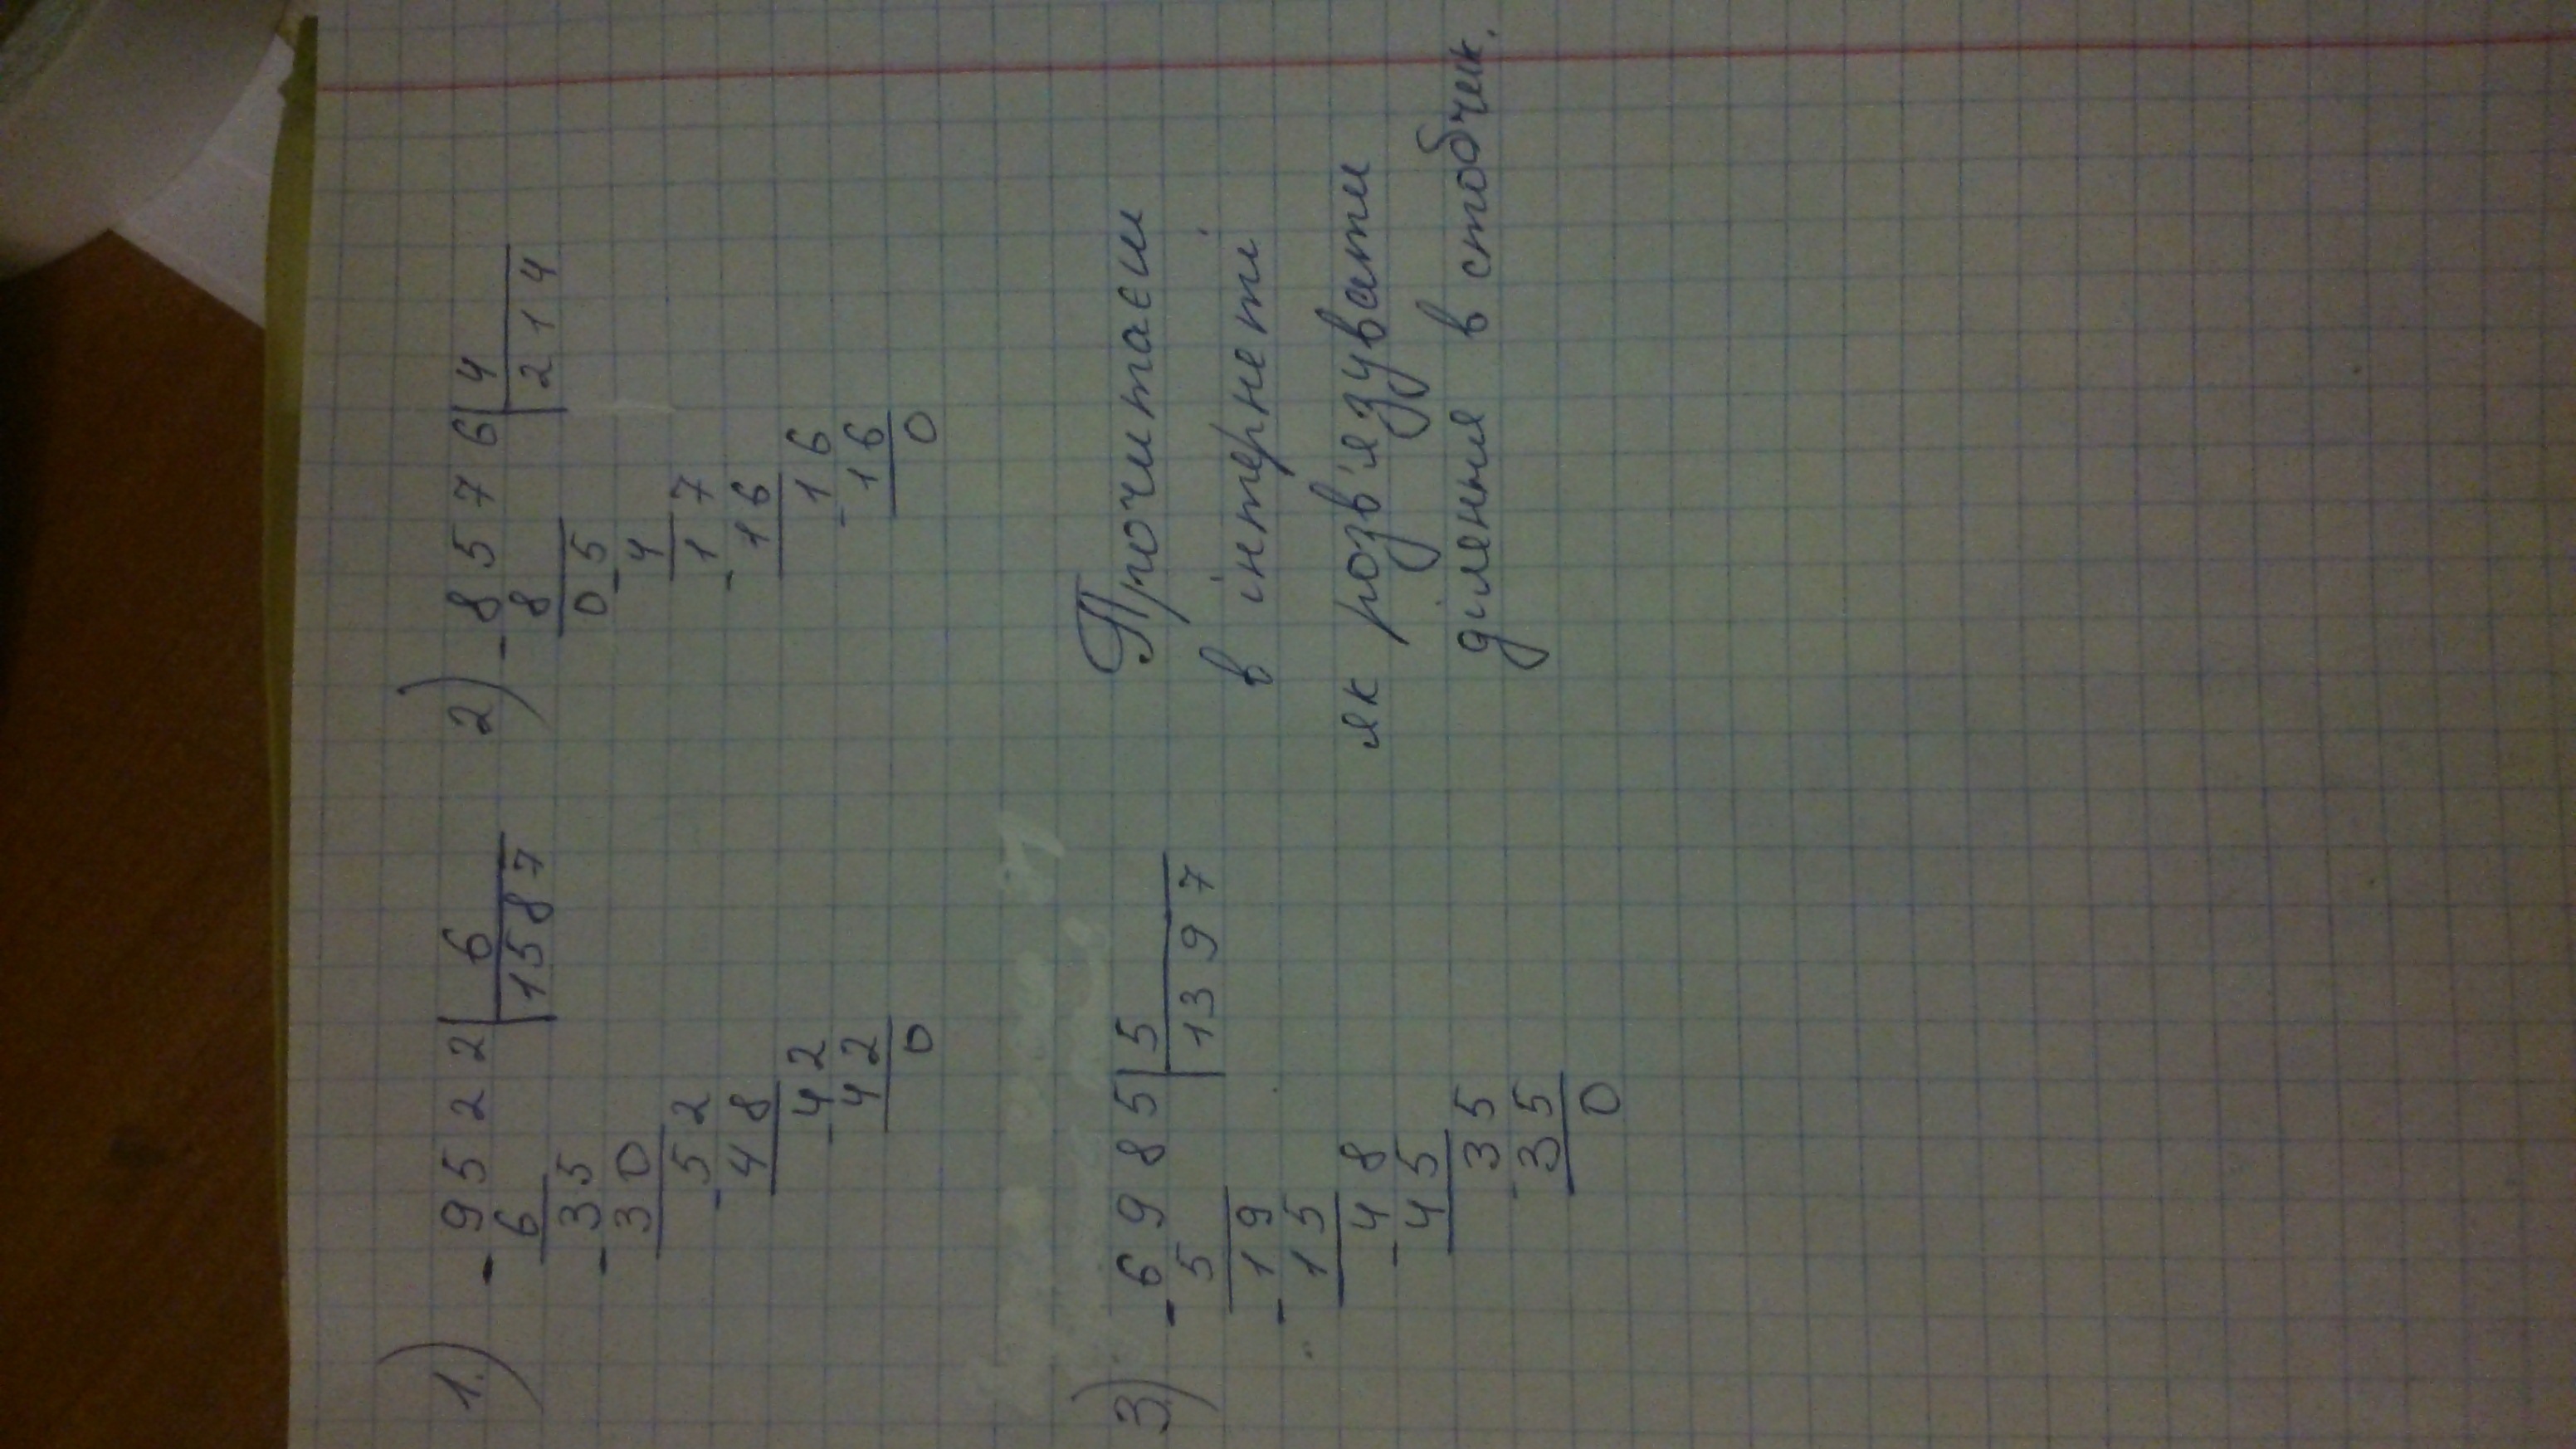 1.) -95222|6
6 1587
-35
30
-52
48
-42
42
0
2) -8576|4
8 214
05
-4
17
-16
-16
16
0
3) -6985|5
5 1397
-19
15
-48
45
35
-35
0
Прочитаєш
в інтернеті
як розв'язувати
ділення в стобчик.